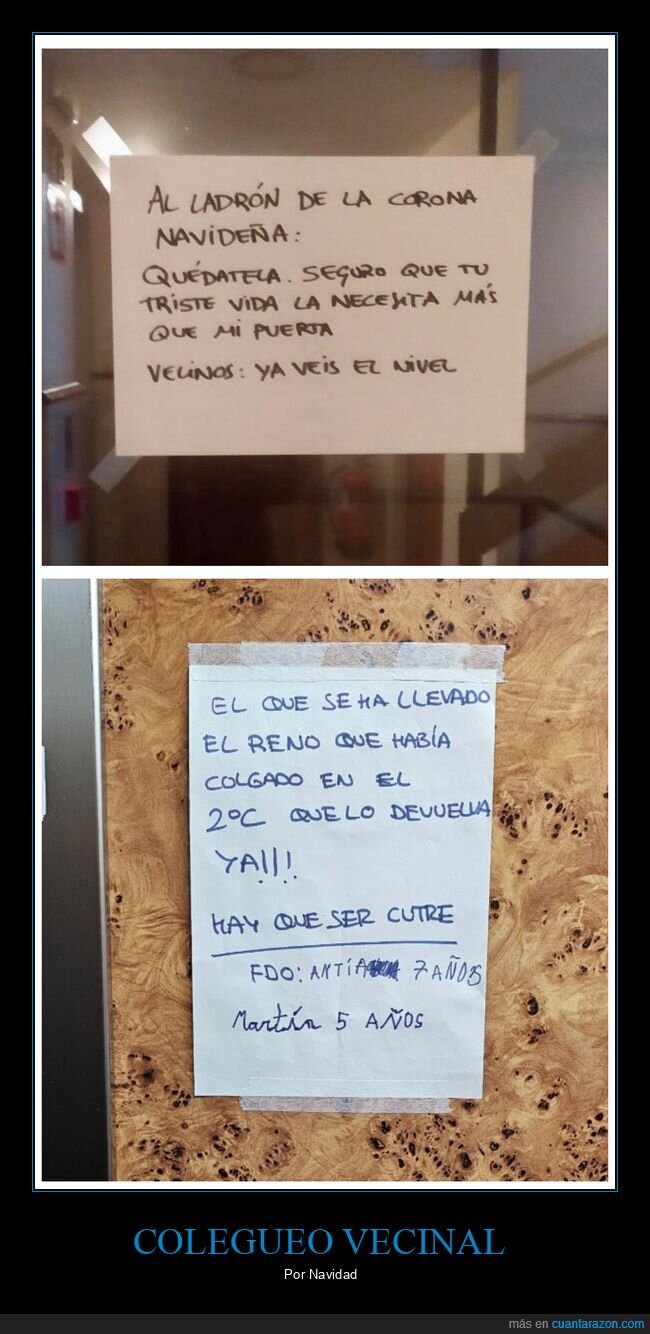 AL LADRÓN DE LA CORONA
NAVIDEÑA:
QUÉDATELA. SEGURO QUE TU
TRISTE VIDA LA NECESITA MÁS
QUE MI PUERTA
VECINOS: YA VEIS EL NIVEL
EL QUE SE HA LLEVADO
EL RENO QUE HABÍA
COLGADO EN EL
2ºC QUE LO DEVUELVA
YA!!!
HAY QUE SER CUTRE
FDO: ANTÍA 7 AÑOS
Martín 5 AÑOS
COLEGUEO VECINAL
Por Navidad
más en cuantarazon.com